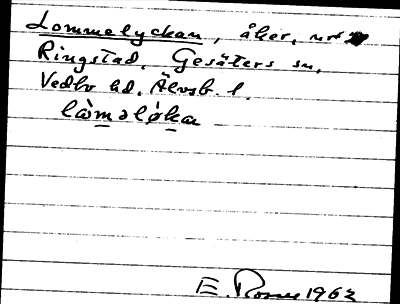 Lommelyckan, åker, nr 2
Ringstad, Gesäters sn,
Vedbo hd. Älvsb. l.
làməløka
E. Rosus 1963